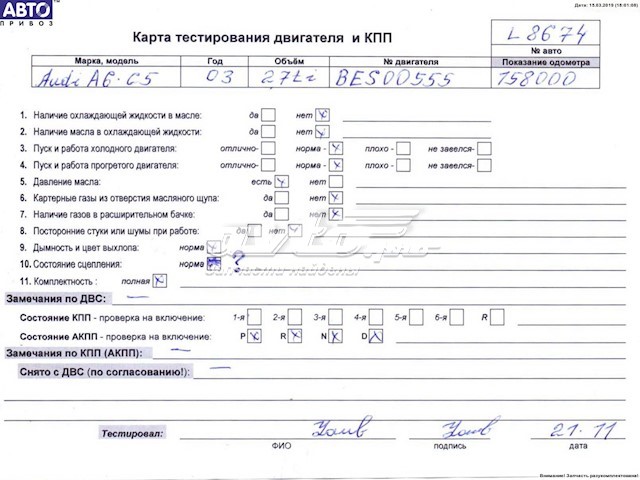 Дата: 15.03.2019 (15:01:05)
АВТО
ПРИВОЗ
Карта тестирования двигателя и КПП
L 8674
№ авто
Марка, модель Год Объём № двигателя Показание одометра
Audi A6-C5 03 2,7Ti BES00555 158000
1. Наличие охлаждающей жидкости в масле: да нет
2. Наличие масла в охлаждающей жидкости: да нет
3. Пуск и работа холодного двигателя: отлично- норма - плохо - не завелся-
4. Пуск и работа прогретого двигателя: отлично- норма - плохо - не завелся-
5. Давление масла: есть нет
6. Картерные газы из отверстия масляного щупа: да нет
7. Наличие газов в расширительном бачке: да нет
8. Посторонние стуки или шумы при работе: да нет
9. Дымность и цвет выхлопа: норма
10. Состояние сцепления: норма ?
11. Комплектность : полная
Замечания по ДВС: —
Состояние КПП - проверка на включение: 1-я 2-я 3-я 4-я 5-я 6-я R
Состояние АКПП - проверка на включение: P R N D
Замечания по КПП (АКПП): —
Снято с ДВС (по согласованию!): —
Тестировал: 21.11
ФИО подпись дата
Внимание! Запчасть разукомплектована!